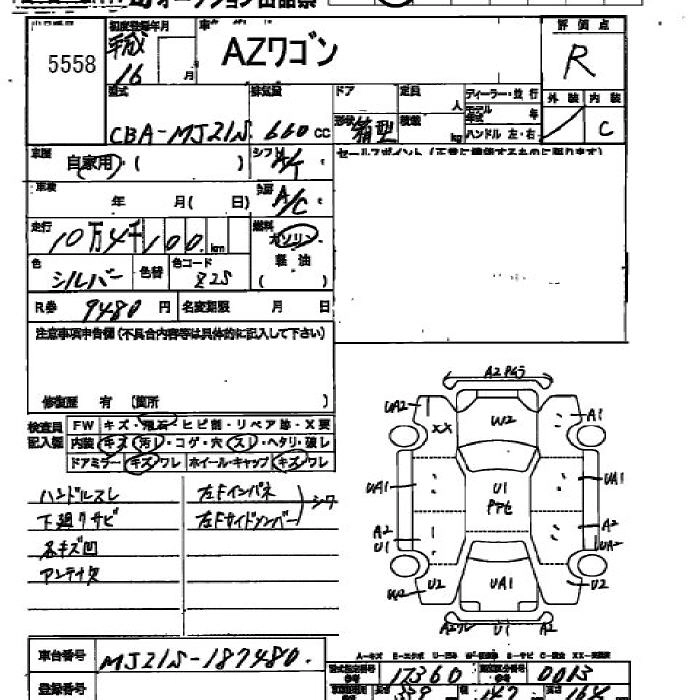 オークション出品票
5558
初度登録年月
平成
16 月
AZワゴン
評価点
R
型式
CBA-MJ21S
排気量
660 cc
ドア
形状 箱型
定員 人
積載 kg
ディーラー・並行
モデル年式 年
ハンドル 左・右
外装 内装
C
車歴
自家用・( )
シフト
セールスポイント (正常に機能するものに限ります)
車検
年 月( 日)
冷房
A/C
走行
10万4千100 km
燃料
ガソリン
軽油
( )
色
シルバー
色替
色コード
Z2S
R券 9480 円
名変期限 月 日
注意事項申告欄(不具合内容等は具体的に記入して下さい)
修復歴 有 (箇所 )
検査員記入欄
FW キズ・飛石・ヒビ割・リペア跡・X要
内装 キズ・汚レ・コゲ・穴・スレ・ヘタリ・破レ
ドアミラー キズ・ワレ ホイール・キャップ キズ・ワレ
ハンドルスレ
下廻りサビ
各キズ凹
アンテナ欠
左Fインパネ
左Fサイドメンバー
シワ
UA2
XX
W2
A1
UA1
U1
UA1
A2
U1
A2
UA2
U2
UA1
U2
U1
A2
車台番号 MJ21S-187480.
登録番号
A-キズ
型式指定番号 17360
類別区分番号 0013